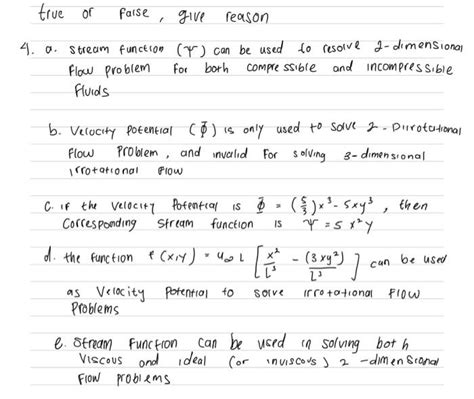 true or false, give reason
4. a. Stream function (Ψ) can be used to resolve 2-dimensional
flow problem for both compressible and incompressible
fluids
b. Velocity Potential (Φ) is only used to solve 2-Dirrotational
flow problem, and invalid for solving 3-dimensional
irrotational flow
c. if the velocity Potential is Φ = (5/3)x³ - 5xy³, then
Corresponding stream function is Ψ = 5x²y
d. the function f(x,y) = u∞ L [x²/L³ - (3xy²)/L³] can be used
as Velocity Potential to solve irrotational flow
Problems
e. Stream function can be used in solving both
Viscous and ideal (or inviscous) 2-dimensional
Flow problems